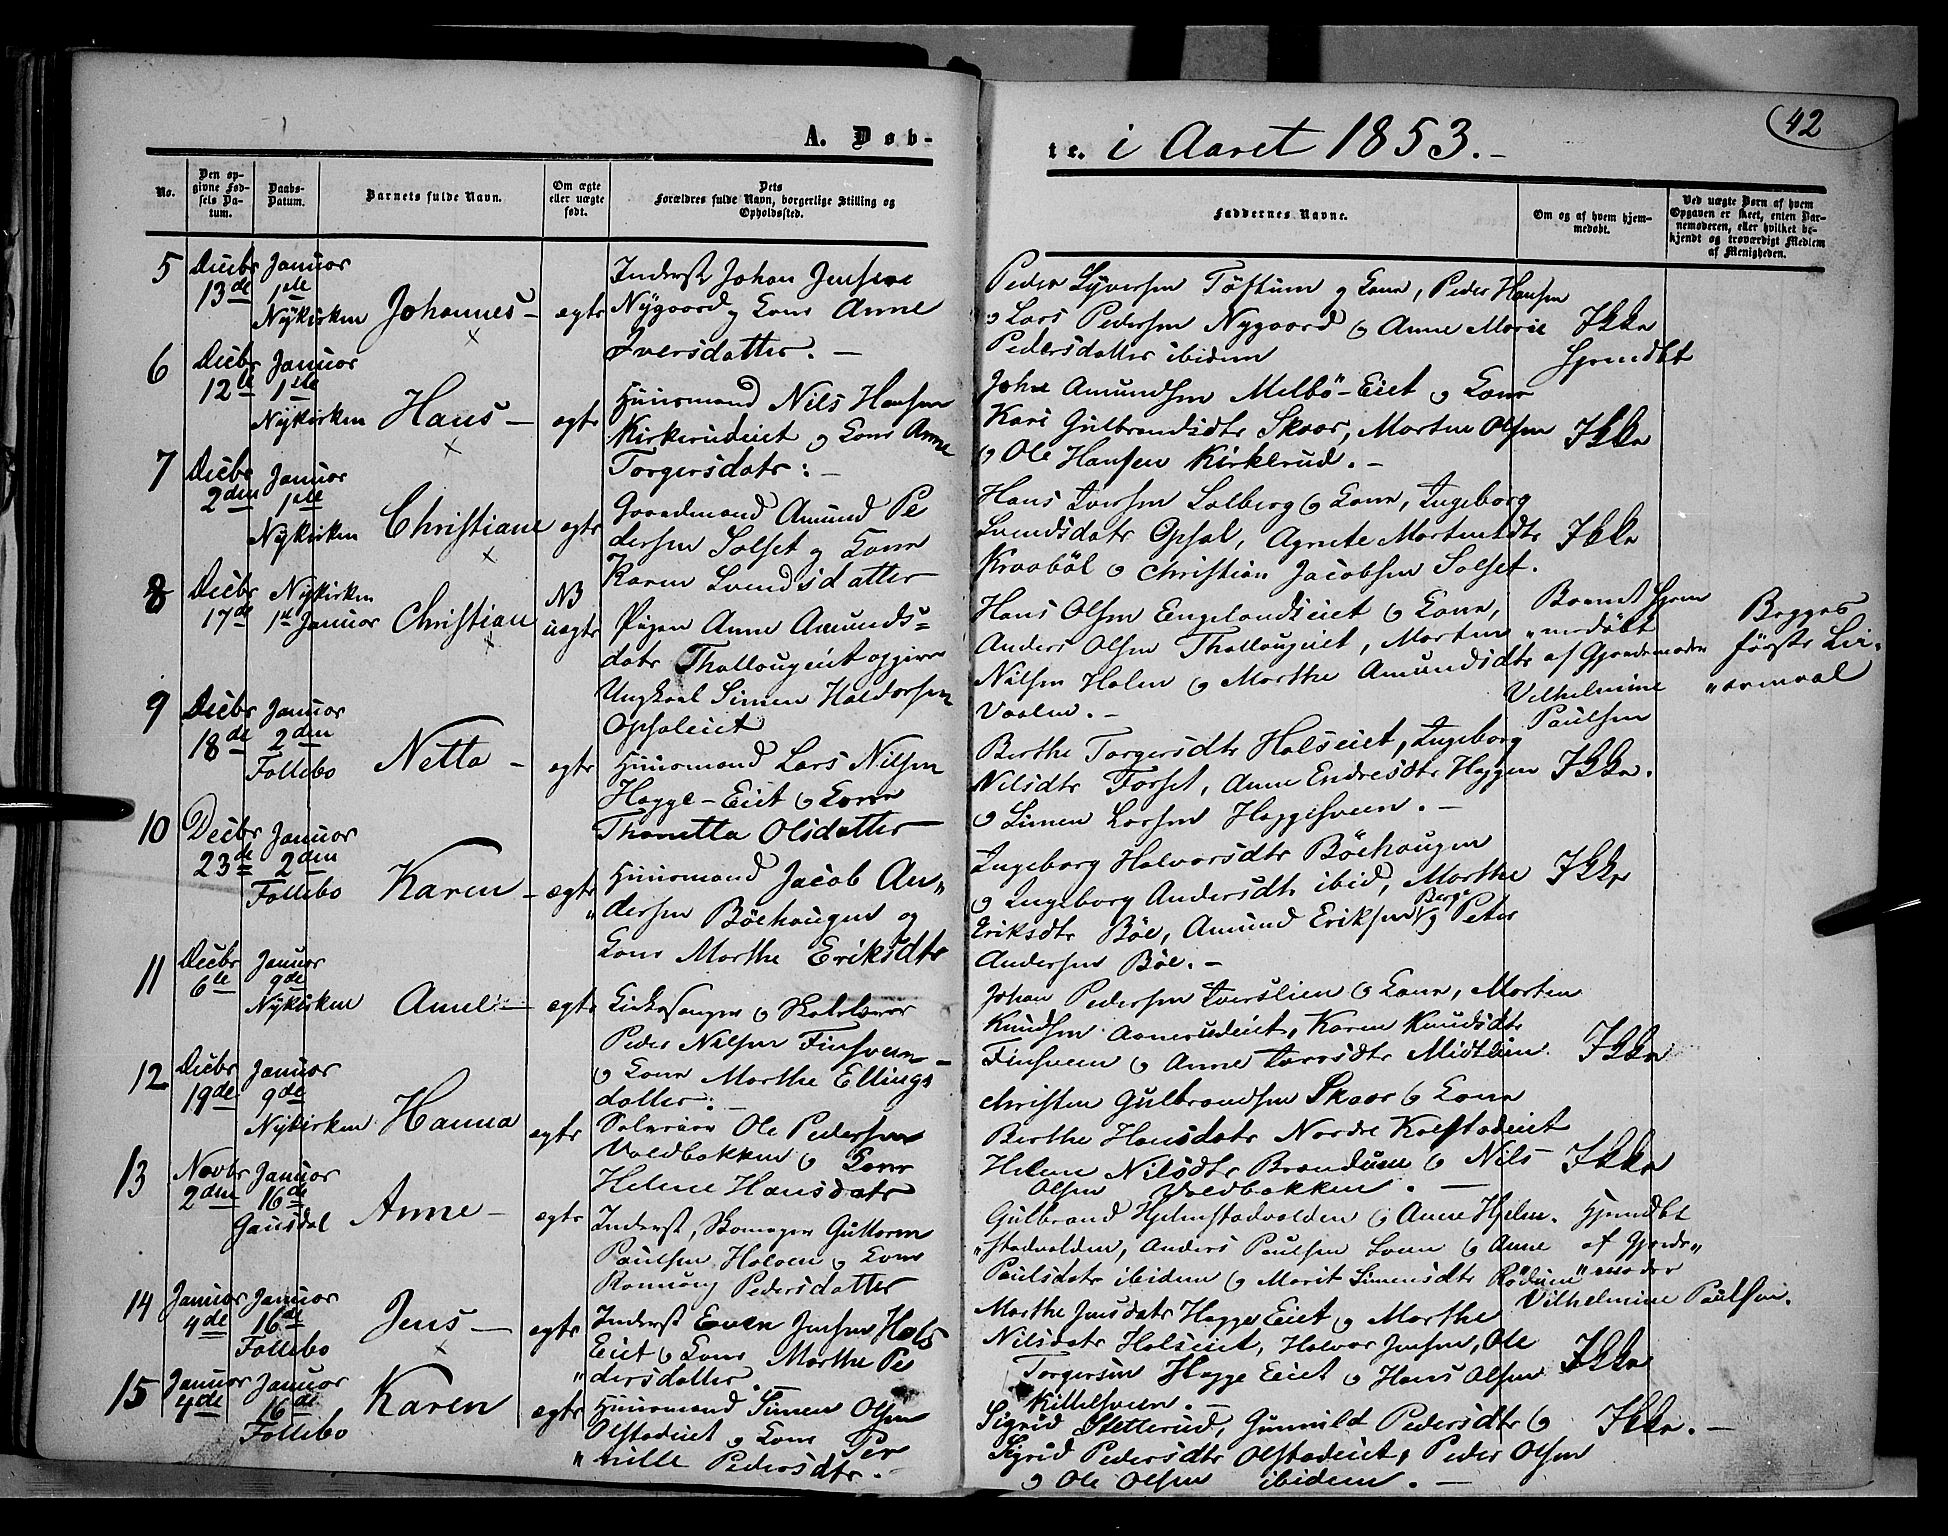 A. Døb-
te. i Aaret 1853.-
42
No.
Den op-
givne Fød-
sels Da-
tum.
Daabs-
Datum.
Barnets fulde Navn.
Om ægte
eller uægte
født.
Dets
Forældres fulde Navn, borgerlige Stilling og
Opholdssted.
Faddernes Navne.
Om og af hvem hjem-
medøbt.
Ved uægte Børn af hvem
Opgaven er skeet, enten Bar-
nemoderen, eller hvilket be-
kjendt og troværdigt Medlem
af Menigheden.
5 Decbr 13de
Januar 1ste
Nykirken
Johannes -
ægte
Inderst Johan Jensen
Nygaard og Kone Anne
Iversdatter. -
Peder Syversen Töftum og Kone, Peder Hansen
og Lars Pedersen Nygaard og Anne Marie
Pedersdatter ibidem
Ikke
Hjemdbt
6 Decbr 12te
Januar 1ste
Nykirken
Hans -
ægte
Huusmand Nils Hansen
Kirkerudeiet og Kone Anne
Torgersdatr: -
John Amundsen Melbö-Eiet og Kone
Kari Gulbrandsdtr Skaar, Morten Olsen
og Ole Hansen Kirkerud. -
Ikke
7 Decbr 2den
Januar 1ste
Nykirken
Christiane
ægte
Gaardmand Amund Pe
dersen Solset og Kone
Karen Svendsdatter
Hans Iversen Solberg og Kone, Ingeborg
Svendsdatr Opsal, Agnete Mortensdtr
Kraaböl og Christian Jacobsen Solset.
Ikke
8 Decbr 17de
Nykirken
1ste Januar
Christian
NB
uægte
Pigen Anne Amunds=
datr Thallaugeiet opgiver
Ungkarl Simen Haldorsen
Opsaleiet
Hans Olsen Engelandseiet og Kone,
Anders Olsen Thallaugeiet, Morten
Nilsen Holen og Marthe Amundsdtr
Vaalen. -
Barnet hjem
"medöbt
af Gjordemoder
Vilhelmine
Paulsen
Begges
förste Lei-
"ermaal
9 Decbr 18de
Januar 2den
Follebo
Netta -
ægte
Huusmand Lars Nilsen
Hagge-Eiet og Kone
Thonetta Olsdatter
Berthe Torgersdtr Holseiet, Ingeborg
Nilsdtr Forset, Anne Endresdtr Haggen
og Simen Larsen Haggesveen. -
Ikke.
10 Decbr 23de
Januar 2den
Follebo
Karen -
ægte
Huusmand Jacob An"
"dersen Böehaugen og
Kone Marthe Eriksdtr
Ingeborg Halvorsdtr Böehaugen
og Ingeborg Andersdtr ibid, Marthe
Eriksdtr Böe, Amund Eriksen Berg og Peter
Andersen Böe. -
Ikke
11 Decbr 6te
Januar 9de
Nykirken
Anne -
ægte
Kirkesanger og Skolelærer
Peder Nilsen Finsveen
og Kone Marthe Ellings-
datter: -
Johan Pedersen Iverslien og Kone, Morten
Knudsen Aanerudeiet, Karen Knudsdtr
Finsveen og Anne Larsdtr Midtlien
Ikke
12 Decbr 19de
Januar 9de
Nykirken
Hanna
ægte
Ole Pedersen
Voldbakken og Kone
Helene Hansdatr
Christen Gulbrandsen Skaar og Kone
Berthe Hansdatr Nordre Kalstadeiet
Helene Nilsdtr Brandveen og Nils
Olsen Voldbakken. -
Ikke
13 Novbr 2den
Januar 16de
Gausdal
Anne -
ægte
Inderst, Skomager Guttorm
Paulsen Holoen og Kone
Ronnoug Pedersdatter
Gulbrand Hjelmstadvolden og Anne Hjelm.
"stadvolden, Anders Paulsen Loen og Anne
Paulsdatr ibidem og Marit Simensdtr Rödum
Hjemdbt
af Gjorde"
"moder
Vilhelmine Paulsen.
14 Januar 4de
Januar 16de
Follebo
Jens -
ægte
Inderst Even Jensen Hols
Eiet og Kone Marthe Pe
"dersdatter.
Marthe Jensdatr Hagge Eiet og Marthe
Nilsdatr Holseiet, Halvor Jensen, Ole
Torgersen Hagge Eiet og Hans Olsen
Kittelsveen. -
Ikke
15 Januar 4de
Januar 16de
Follebo
Karen
ægte
Huusmand Simen Olsen
Olstadeiet og Kone Per
"nille Pedersdtr. -
Sigrid Sletterud, Gunnild Pedersdtr og
Sigrid Pedersdtr Olstadeiet, Peder Olsen
og Ole Olsen ibidem. -
Ikke. -